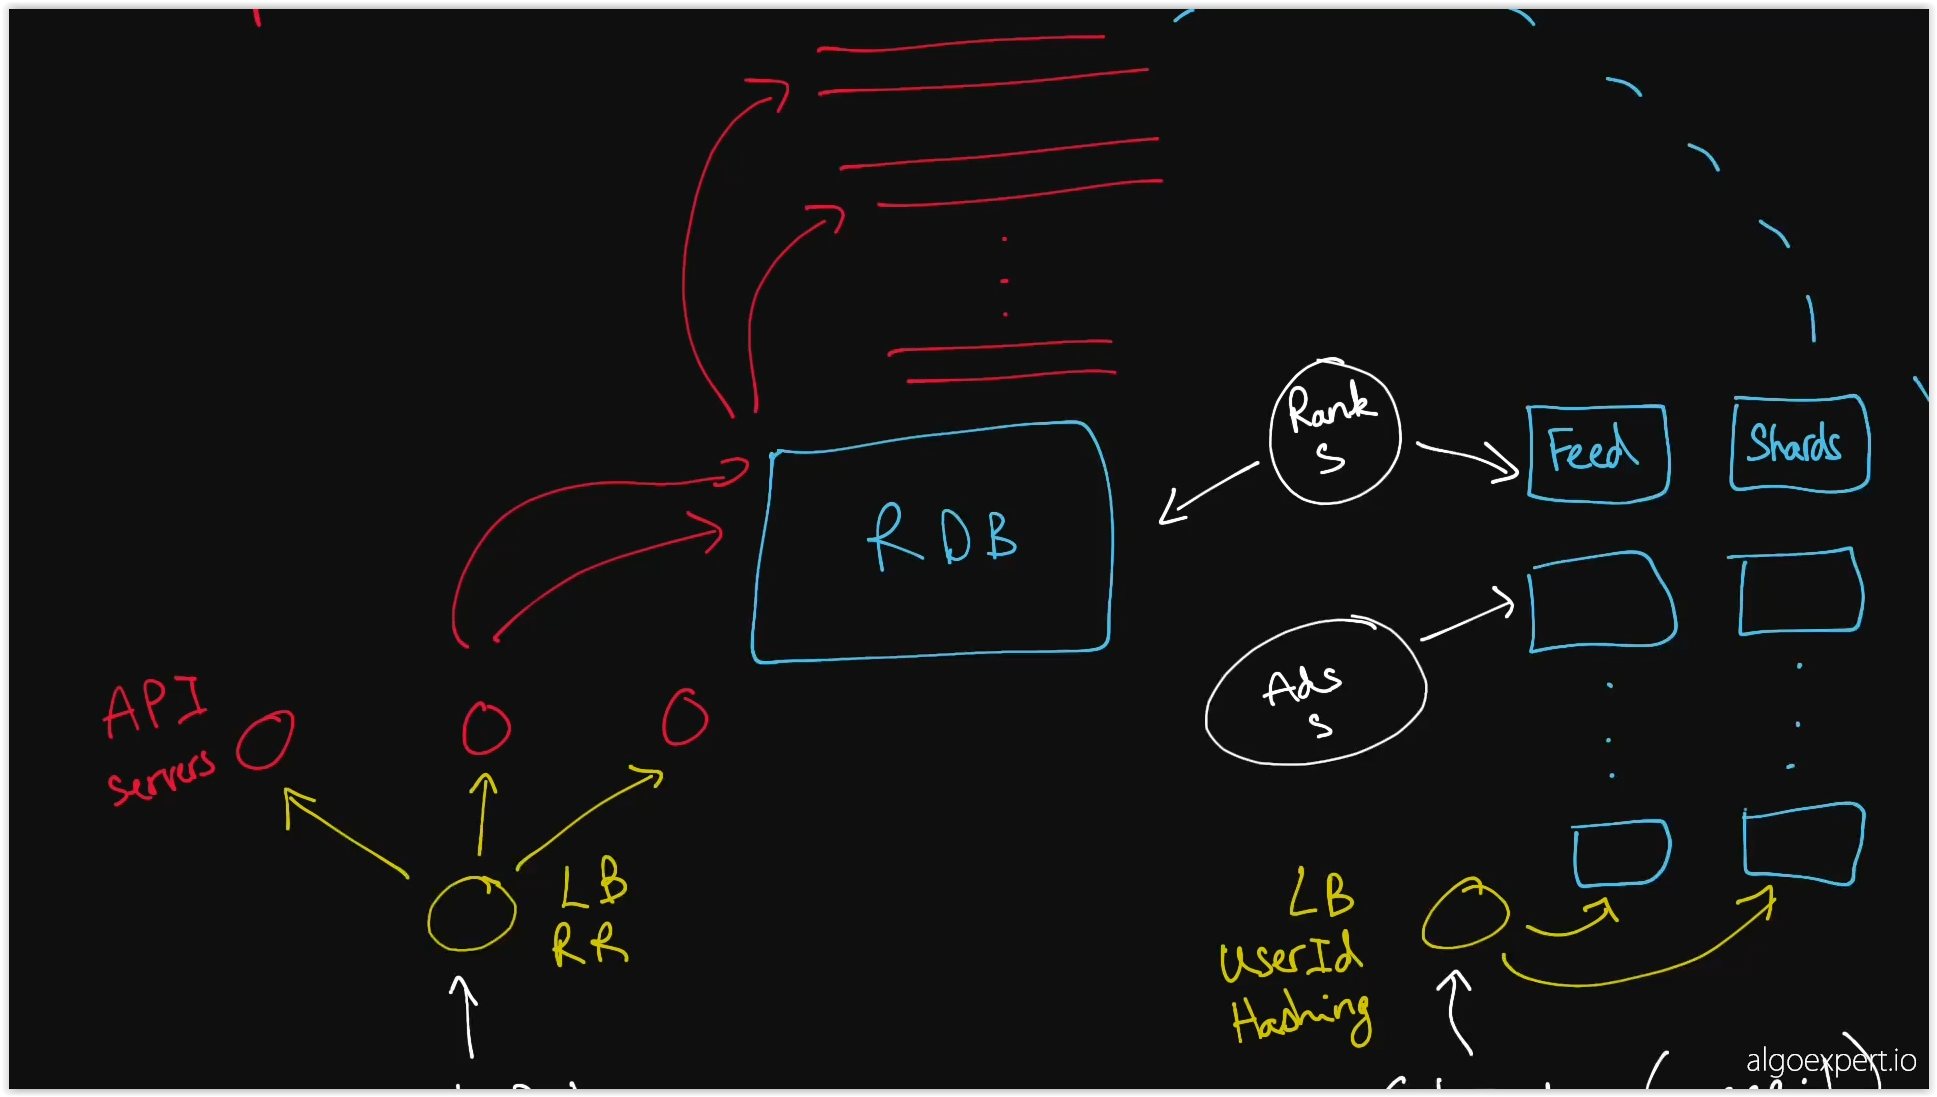 Rank
S
Feed
Shards
RDB
Ads
S
API
servers
LB
RR
LB
UserId
Hashing
algoexpert.io